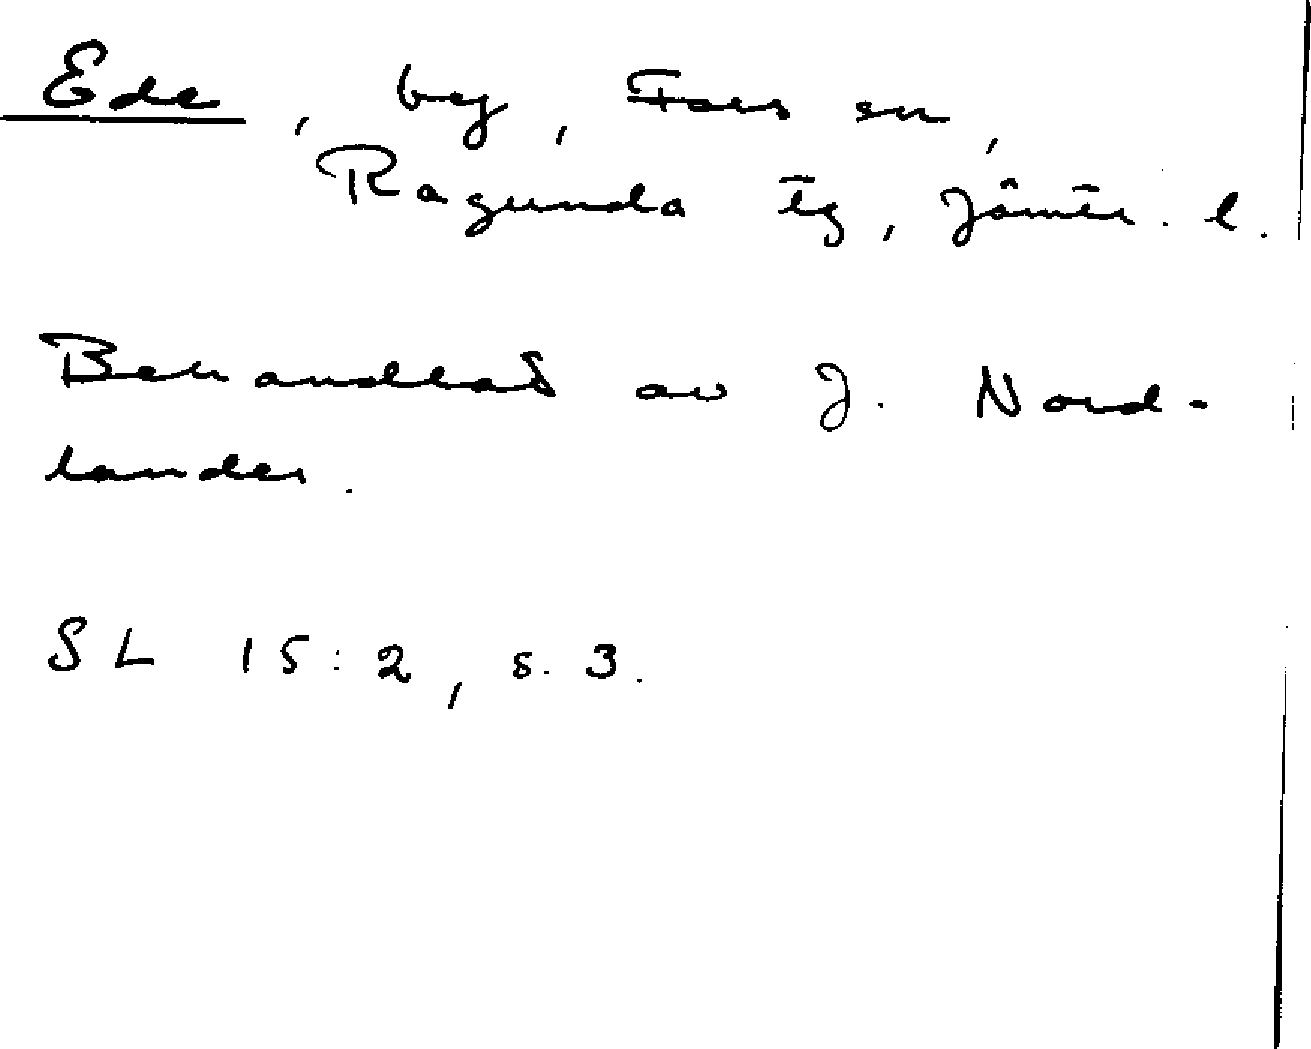 Ede, by, Fors sn,
Ragunda tg, Jämtl. l.
Behandlat av J. Nord-
lander.
SL 15:2, s. 3.